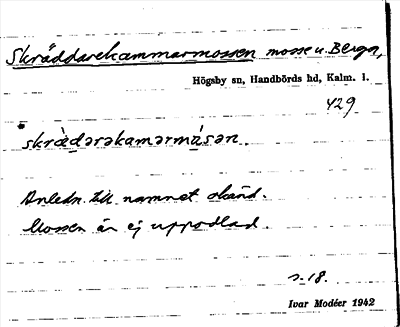 Skräddarekammarmossen mosse u. Berga,
Högsby sn, Handbörds hd, Kalm. l.
429
skrädarəkamərmåsən.
Anledn. till namnet okänd.
Mossen är ej uppodlad.
s. 18.
Ivar Modéer 1942